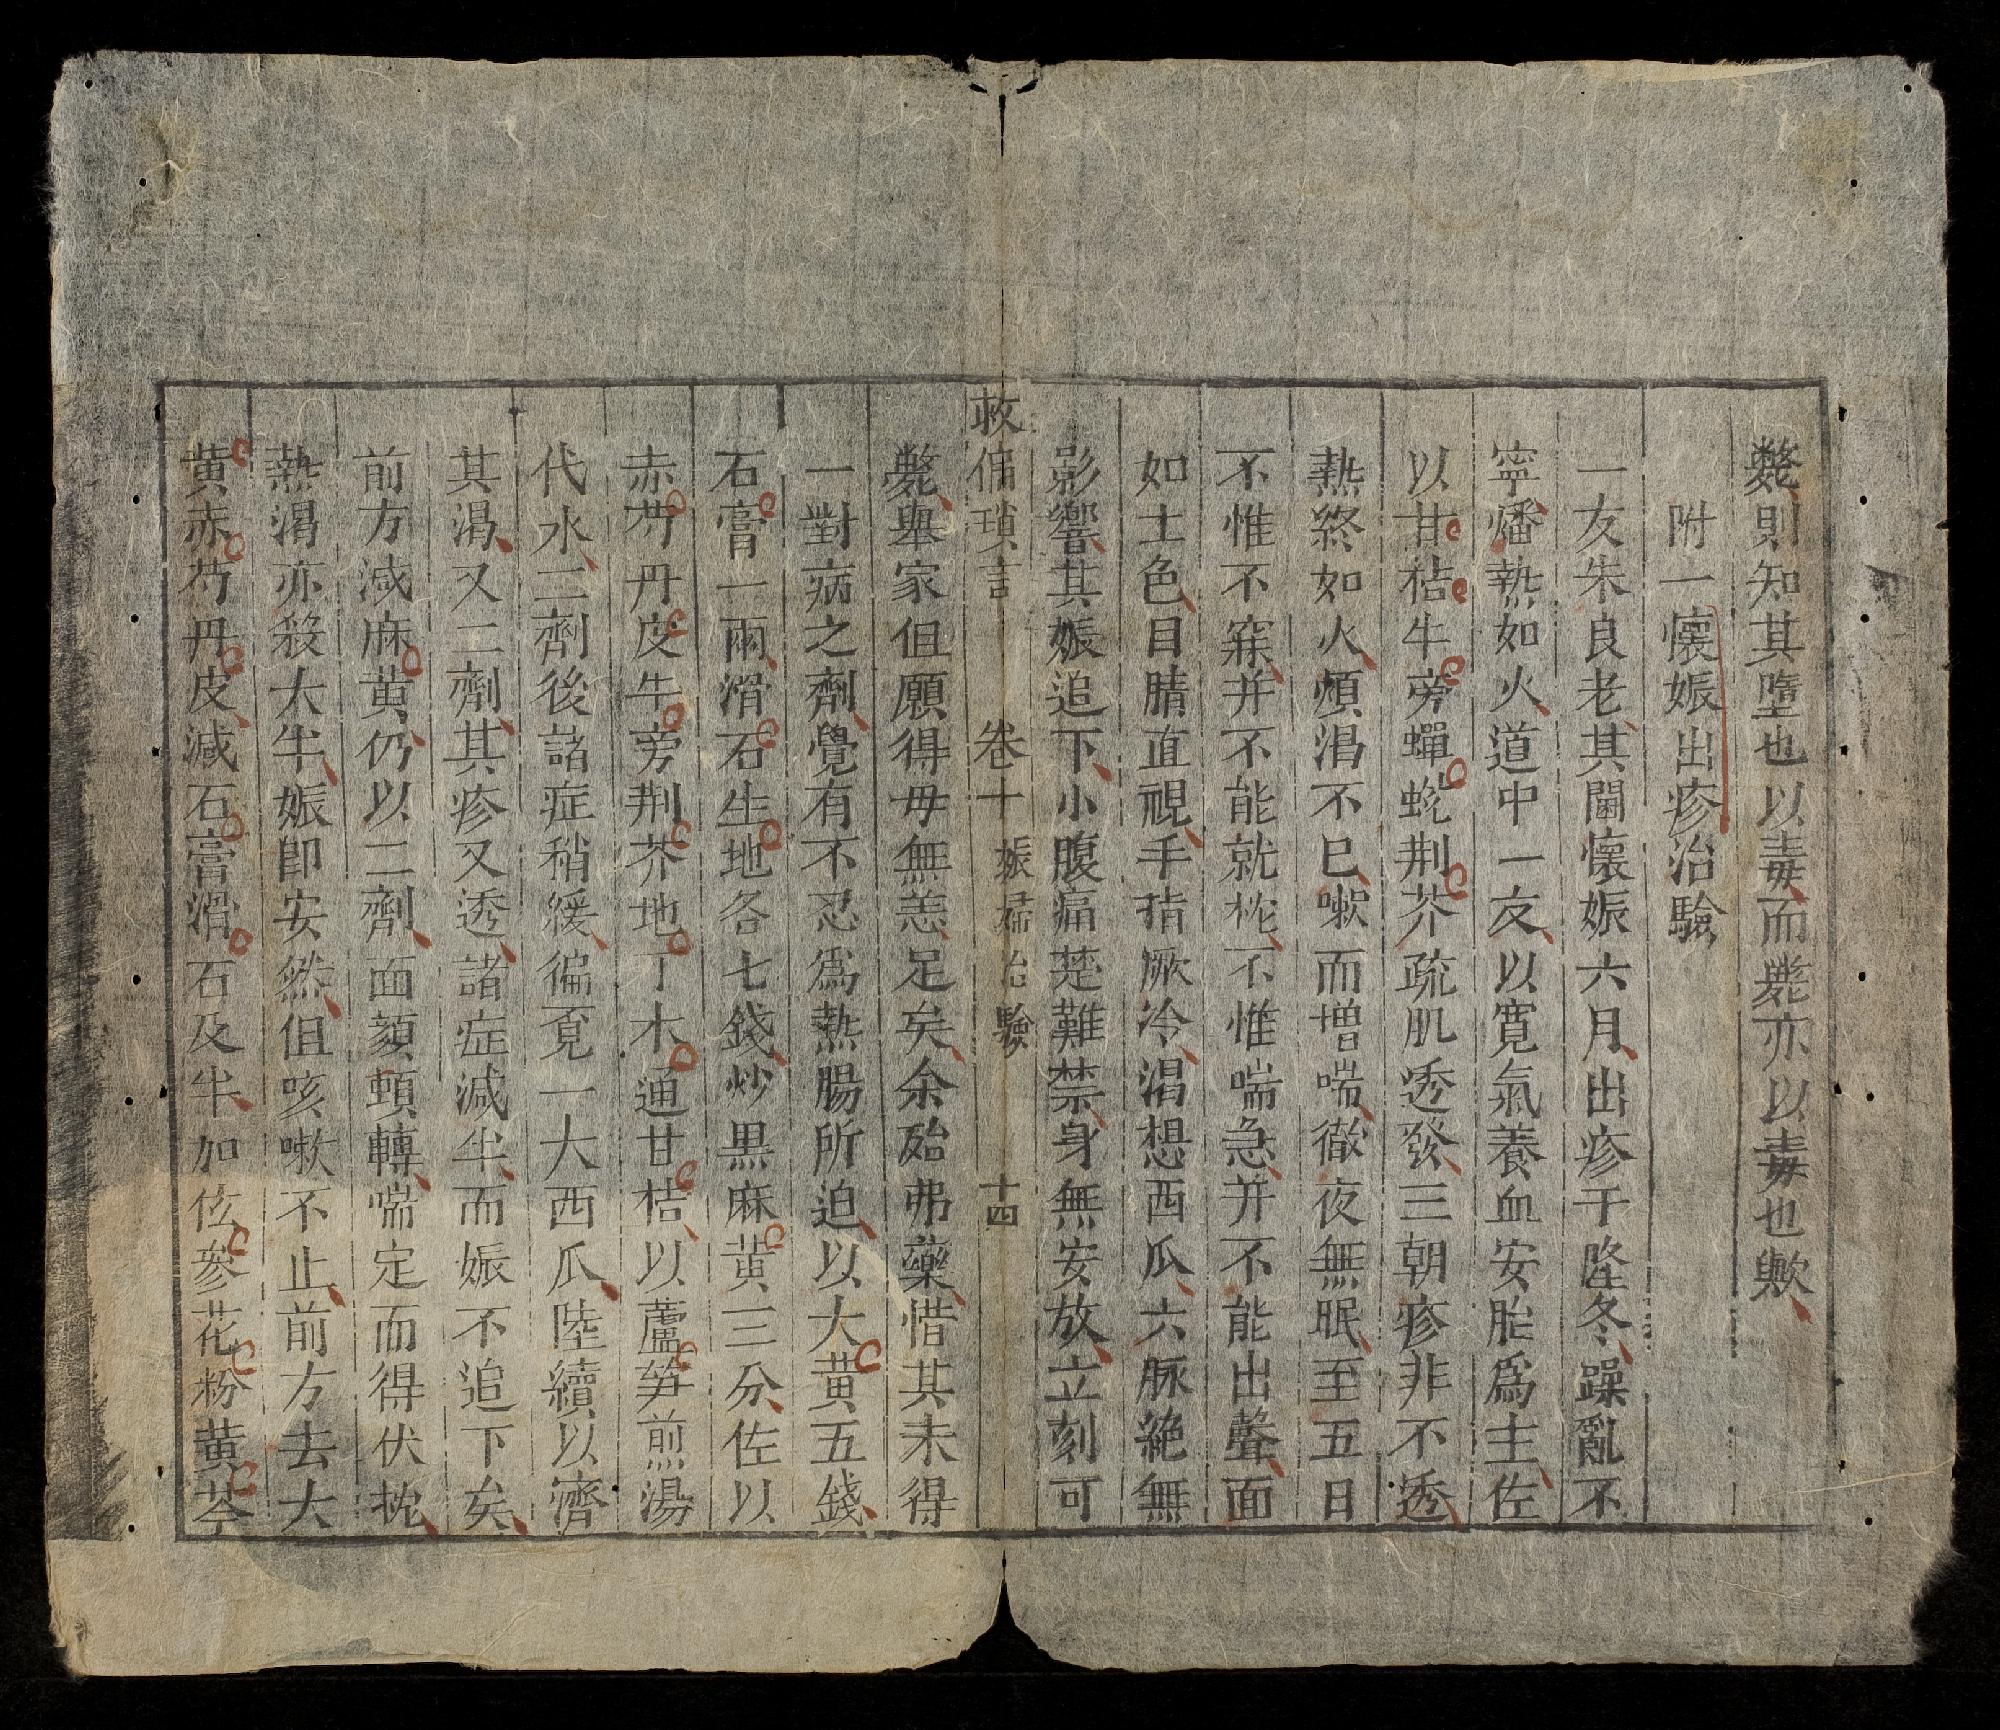 斃則知其墮也以毒而斃亦以毒也歟
附一懷娠出疹治驗
一友朱良老其閫懷娠六月出疹于隆冬躁亂不
寧燔熱如火道中一友以寬氣養血安胎爲主佐
以甘桔牛旁蟬蛻荆芥疏肌透發三朝疹非不透
熱終如火煩渴不已嗽而增喘徹夜無眠至五日
不惟不寐并不能就枕不惟喘急并不能出聲面
如土色目睛直視手指厥冷渴想西瓜六脉絶無
影響其娠追下小腹痛楚難禁身無安放立刻可
救偏瑣言 卷十 娠婦治驗 十四
斃舉家但願得母無恙足矣余殆弗藥惜其未得
一對病之劑覺有不忍爲熱腸所迫以大黄五錢
石膏一兩滑石生地各七錢炒黑麻黄三分佐以
赤芍丹皮牛旁荆芥地丁木通甘桔以蘆笋煎湯
代水二劑後諸症稍緩徧覓一大西瓜陸續以濟
其渴又二劑其疹又透諸症減半而娠不追下矣
前方減麻黄仍以二劑面顔頓轉喘定而得伏枕
熱渴亦殺大半娠即安然但咳嗽不止前方去大
黄赤芍丹皮減石膏滑石及半加佐參花粉黄芩